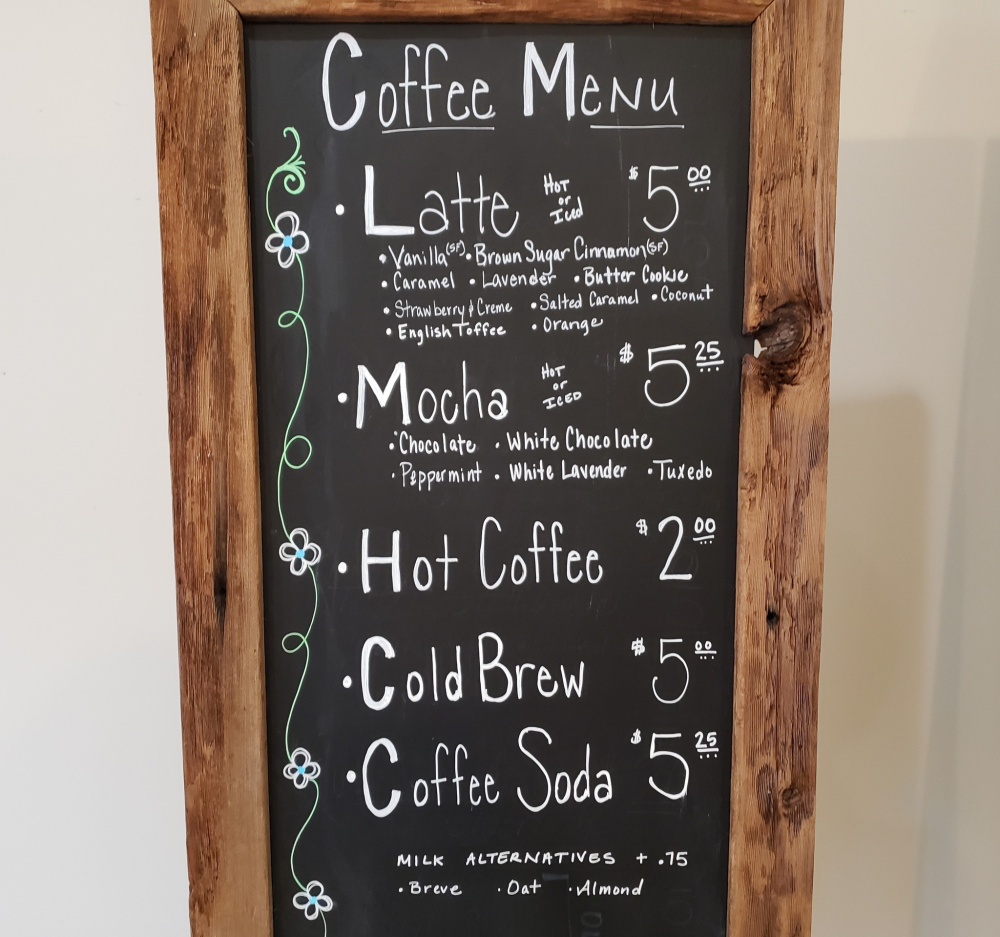 Coffee Menu
• Latte Hot or Iced $5.00
• Vanilla (SF) • Brown Sugar Cinnamon (SF)
• Caramel • Lavender • Butter Cookie
• Strawberry & Creme • Salted Caramel • Coconut
• English Toffee • Orange
• Mocha Hot or Iced $5.25
• Chocolate • White Chocolate
• Peppermint • White Lavender • Tuxedo
• Hot Coffee $2.00
• Cold Brew $5.00
• Coffee Soda $5.25
MILK ALTERNATIVES + .75
• Breve • Oat • Almond